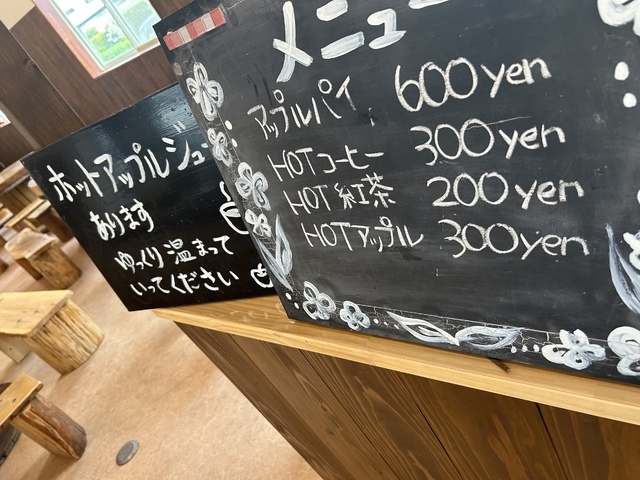 メニュー
アップルパイ 600yen
HOTコーヒー 300yen
HOT 紅茶 200yen
HOTアップル 300yen
ホットアップルジュー
あります
ゆっくり温まって
いってください